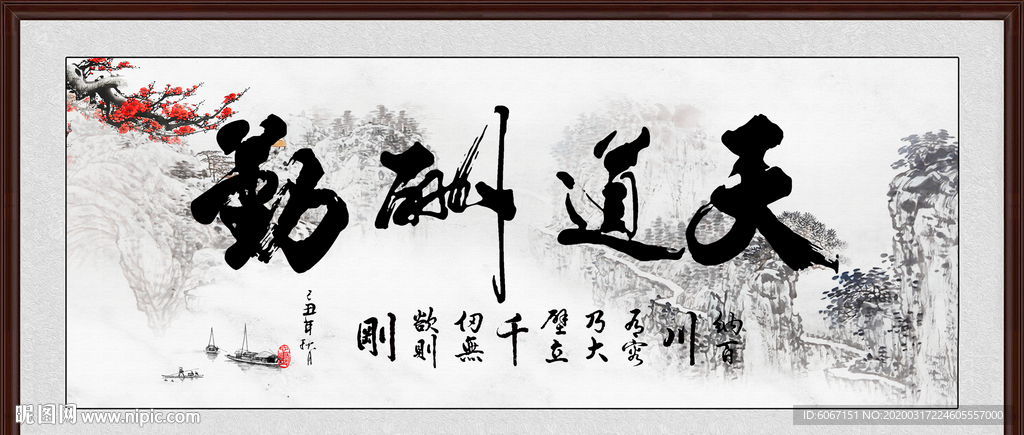 天道酬勤
納百
川
有容
乃大
壁立
千
仞無
欲則
剛
己丑年秋月
昵图网 www.nipic.com
ID:6067151 NO:20200317224605557000